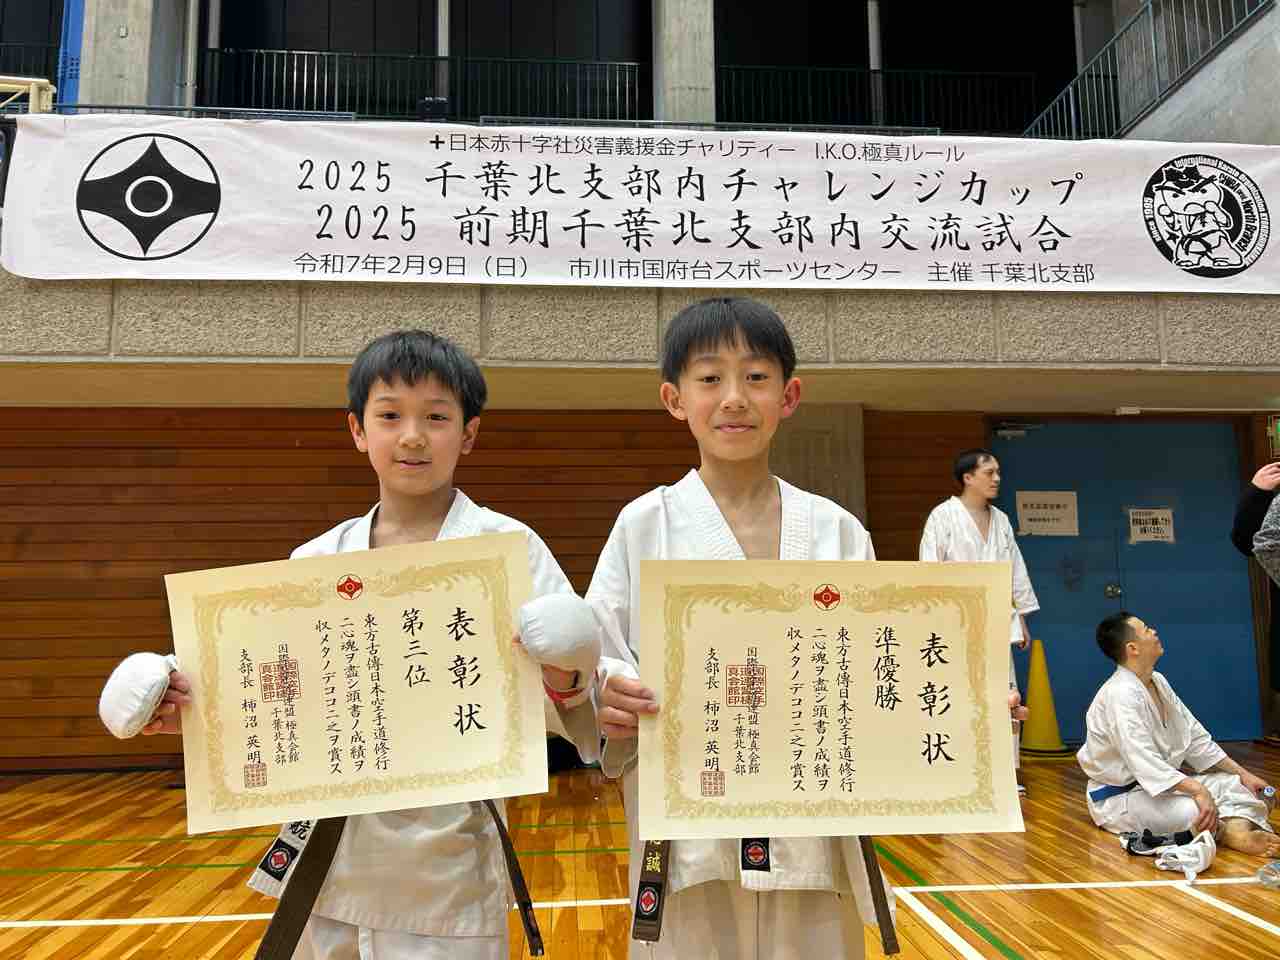 +日本赤十字社災害義援金チャリティー I.K.O.極真ルール
2025 千葉北支部内チャレンジカップ
2025 前期千葉北支部内交流試合
令和7年2月9日（日） 市川市国府台スポーツセンター 主催 千葉北支部
International Karate Organization Kyokushinkaikan
CHIBA and North Branch
表彰状
第三位
東方古傳日本空手道修行
ニ心魂ヲ盡シ頭書ノ成績ヲ
収メタノデココニ之ヲ賞ス
連盟 極真会館
千葉北支部
支部長 柿沼 英明
表彰状
準優勝
東方古傳日本空手道修行
ニ心魂ヲ盡シ頭書ノ成績ヲ
収メタノデココニ之ヲ賞ス
連盟 極真会館
千葉北支部
支部長 柿沼 英明
航
誠